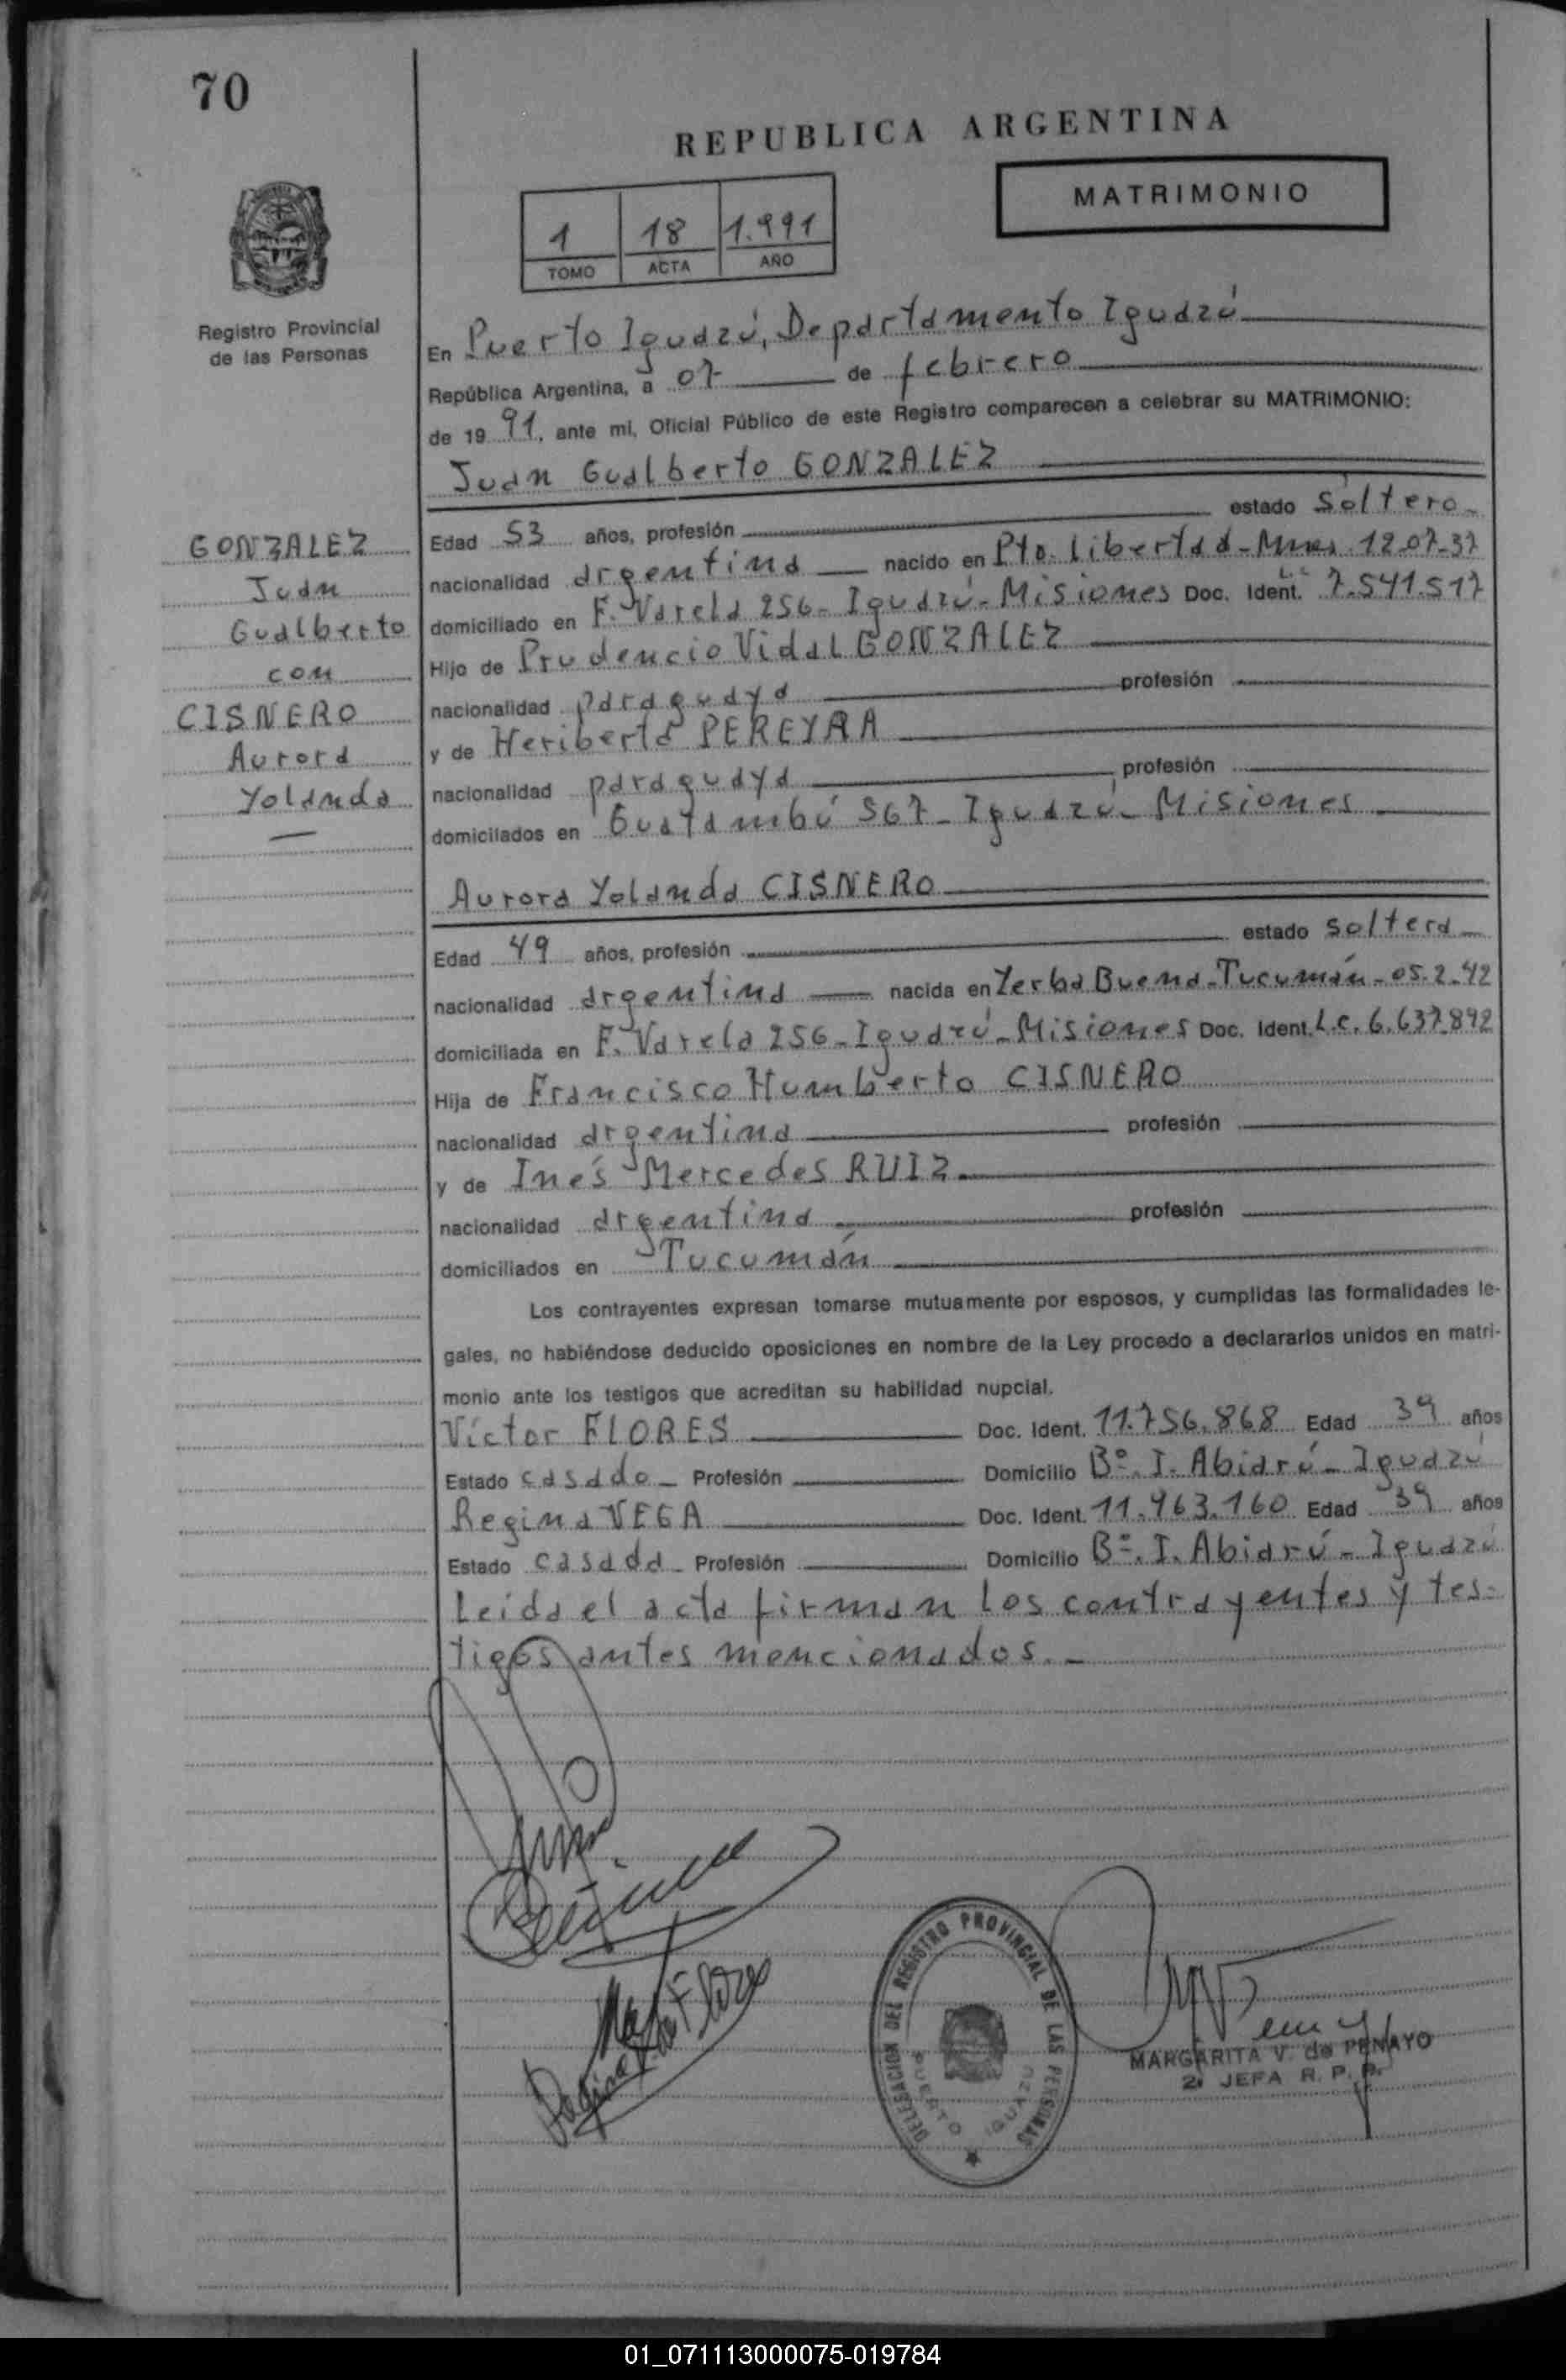 70
REPUBLICA ARGENTINA
MATRIMONIO
1 18 1.991
TOMO ACTA AÑO
Registro Provincial
de las Personas
En Puerto Iguazú, Departamento Iguazú
República Argentina, a 07 de febrero
de 19 91, ante mi, Oficial Público de este Registro comparecen a celebrar su MATRIMONIO:
Juan Gualberto GONZALEZ
GONZALEZ
Juan
Gualberto
con
CISNERO
Aurora
Yolanda
Edad 53 años, profesión estado soltero
nacionalidad argentina nacido en Pto. Libertad - Mnes 12-07-37
domiciliado en F. Varela 256 - Iguazú - Misiones Doc. Ident. 7.541.517
Hijo de Prudencio Vidal GONZALEZ
nacionalidad paraguaya profesión
y de Heriberta PEREYRA
nacionalidad paraguaya profesión
domicilados en Guatambú 567 - Iguazú - Misiones
Aurora Yolanda CISNERO
Edad 49 años, profesión estado soltera
nacionalidad argentina nacida en Yerba Buena - Tucumán - 05-2-42
domiciliada en F. Varela 256 - Iguazú - Misiones Doc. Ident. L.C. 6.637.892
Hija de Francisco Humberto CISNERO
nacionalidad argentina profesión
y de Inés Mercedes RUIZ
nacionalidad argentina profesión
domiciliados en Tucumán
Los contrayentes expresan tomarse mutuamente por esposos, y cumplidas las formalidades le-
gales, no habiéndose deducido oposiciones en nombre de la Ley procedo a declararlos unidos en matri-
monio ante los testigos que acreditan su habilidad nupcial.
Víctor FLORES Doc. Ident. 11.756.868 Edad 39 años
Estado casado - Profesión Domicilio Bº. I. Abiarú - Iguazú
Regina VEGA Doc. Ident. 11.963.160 Edad 39 años
Estado casada - Profesión Domicilio Bº. I. Abiarú - Iguazú
Leída el acta firman los contrayentes y tes-
tigos antes mencionados. -
DELEGACION DEL REGISTRO PROVINCIAL DE LAS PERSONAS
PUERTO IGUAZU
MARGARITA V. de PENAYO
2ª JEFA R. P. P.
01_071113000075-019784